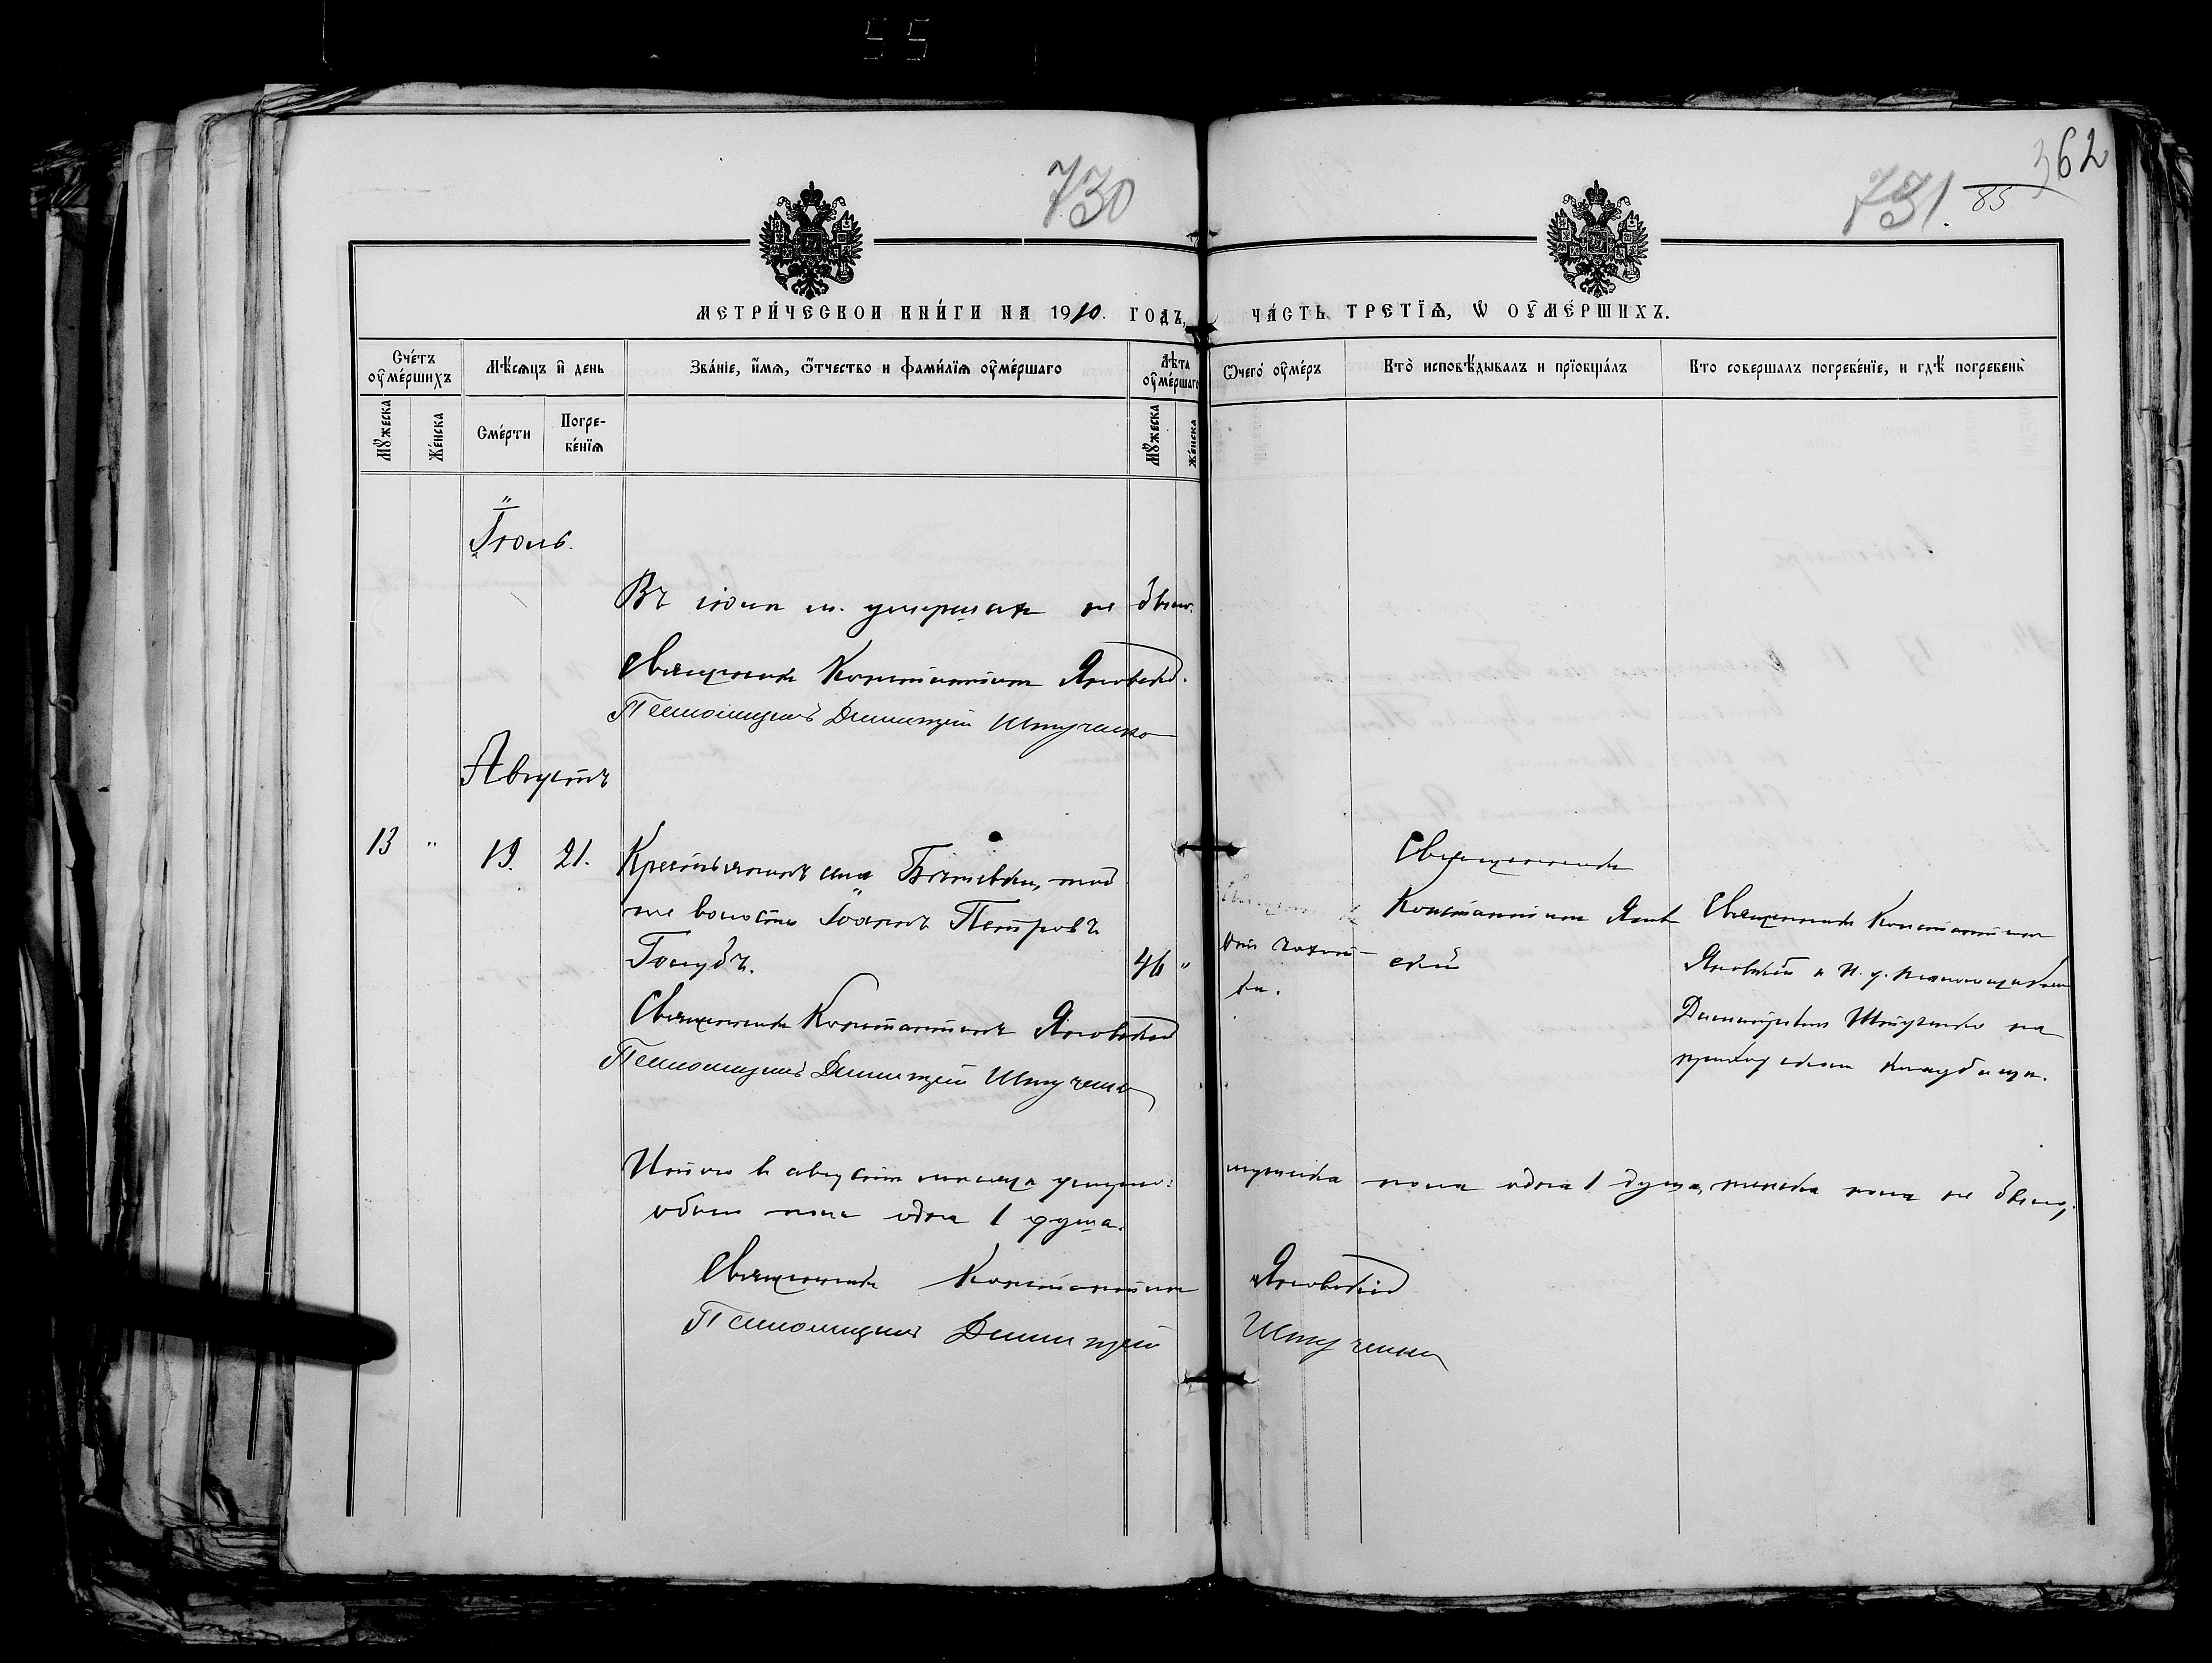 55
730
731.
85
362
МЕТРИ́ЧЕСКОИ КНИ́ГИ НА 1910. ГОДЪ, ЧА́СТЬ ТРЕТІѦ, Ѡ ОУМЕ́РШИХЪ.
Сче́тъ оуме́ршихъ
Мѣ́сѧцъ и день
Зва́ніе, и́мѧ, о́тчество и фами́лїѧ оуме́ршаго
Лѣ́та оуме́ршаго
Ѿчегѡ̀ оуме́ръ
Кто̀ исповѣ́дывалъ и прїобща́лъ
Кто соверша́лъ погребе́нїе, и гдѣ́ погребены̀
Мꙋ́жеска
Же́нска
Сме́рти
Погребе́нїѧ
Мꙋ́жеска
Же́нска
Іюль.
Въ іюлѣ м. умершихъ не было.
Священникъ Константинъ Яновскій.
Псаломщикъ Димитрій Штученко
Августъ
13 " 19. 21. Крестьянинъ села той
же волости Іоаннъ Петровъ
Голубъ. 46 "
Священникъ Константинъ Яновскій
Псаломщикъ Димитрій Штученко
отъ чахот-
ки.
Священникъ
Константинъ Янов
скій
Священникъ Константинъ
Яновскій и и. д. псаломщика
Димитрій Штученко на
приходскомъ кладбищѣ.
Итого въ августѣ мѣсяцѣ умерло: мужска пола одна 1 душа, женска пола не было,
обоего пола одна 1 душа.
Священникъ Константинъ Яновскій
Псаломщикъ Димитрій Штученко